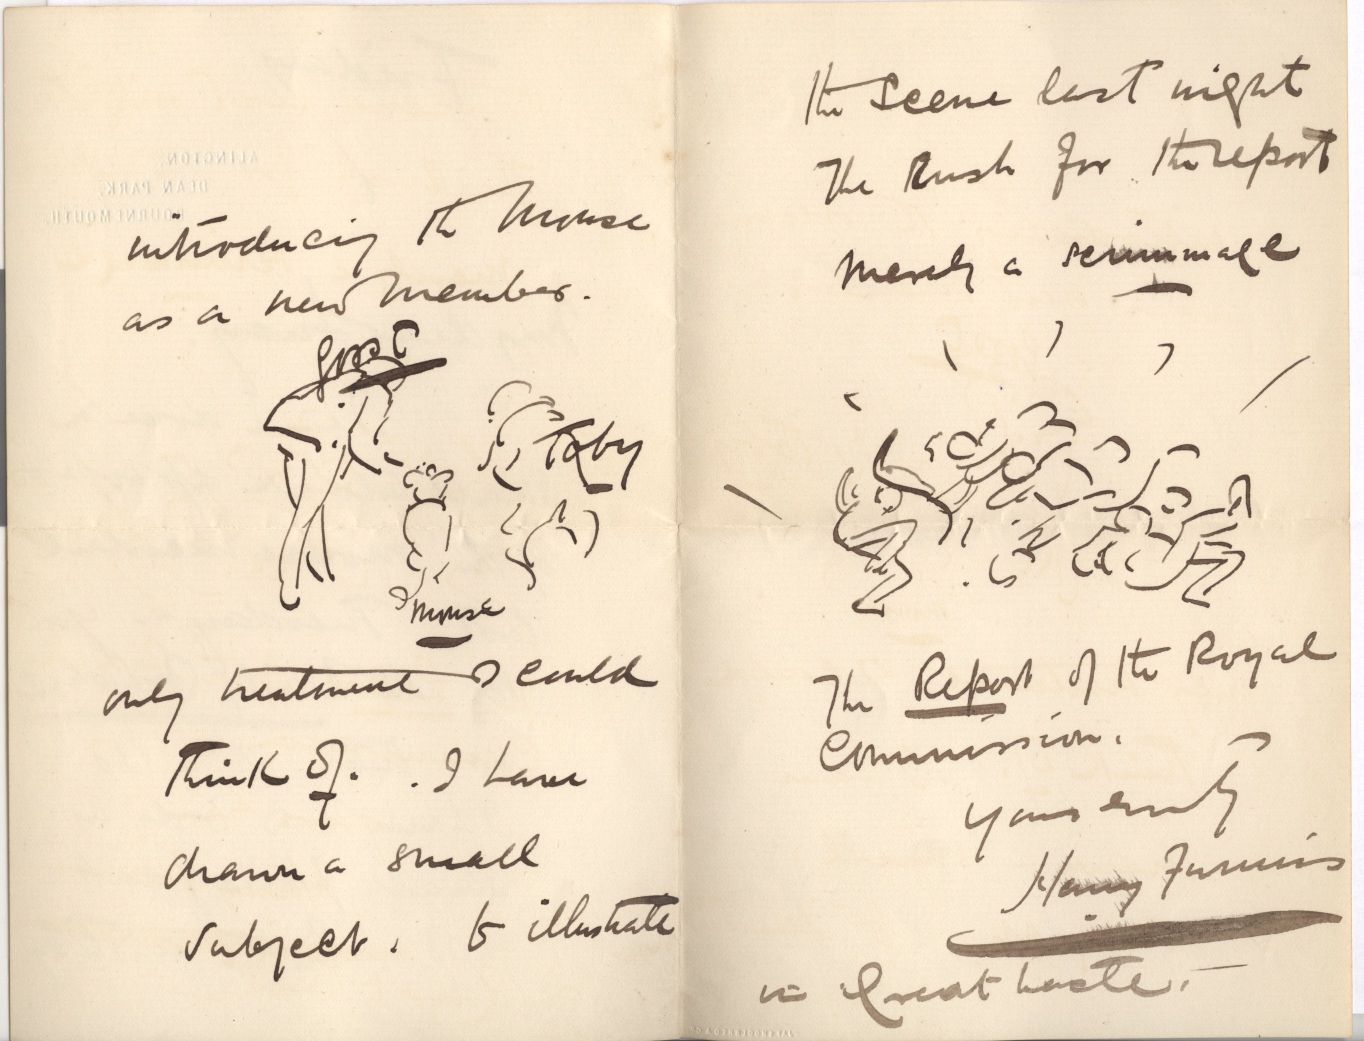 ALINGTON,
DEAN PARK,
BOURNEMOUTH.
introducing the Mouse
as a new Member.
Toby
Mouse
only treatment I could
think of. . I have
drawn a small
subject. to illustrate
the Scene last night
The Rush for the report
merely a scrimmage
The Report of the Royal
Commission.
Yours truly
Harry Furniss
in Great haste.